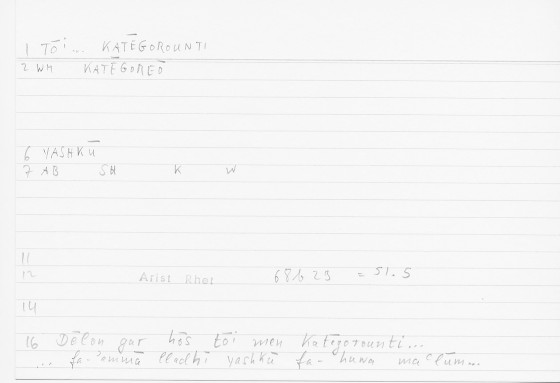 1 TŌi ... KATĒGOROUNTI
2 WM KATĒGOREŌ
6 YASHKŪ
7 AB SH K W
11
12 Arist Rhet 68b 23 = 51.5
14
16 Dēlon gar hōs tōi men Katēgorounti...
... fa-'ammā lladhī yashkū fa-huwa maʿlūm...